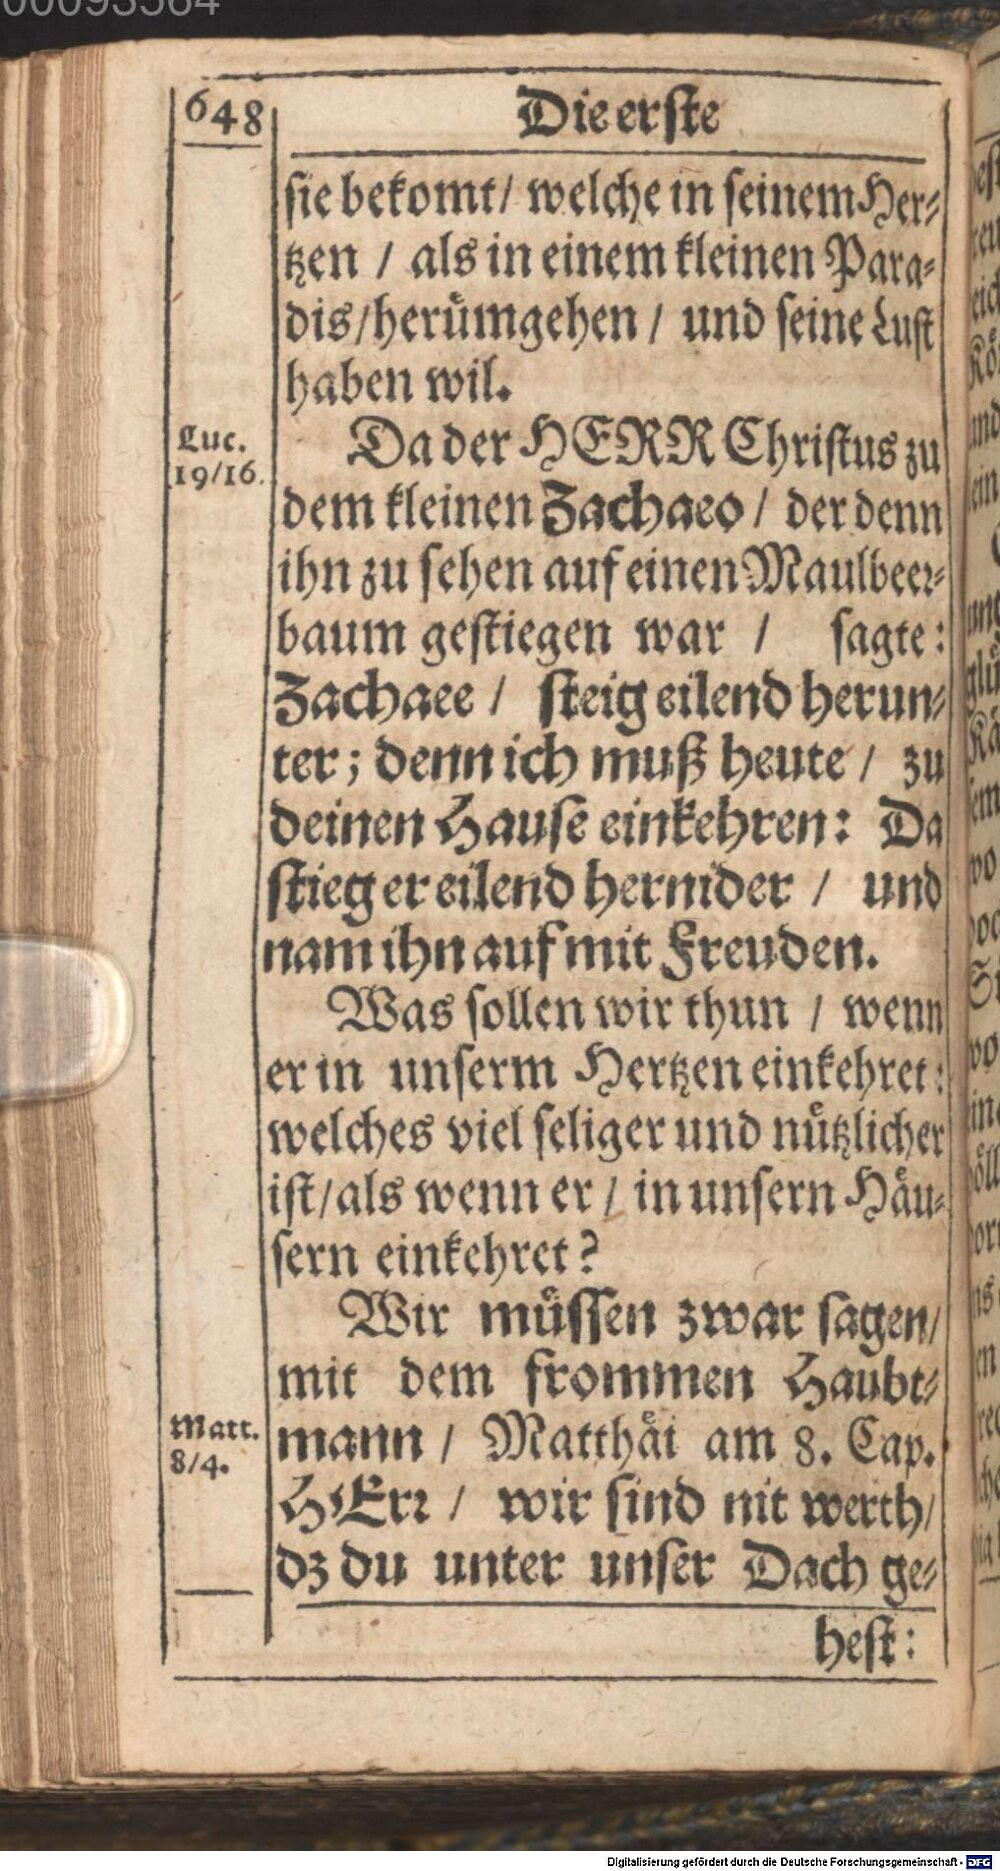 00093564
648
Die erste
sie bekomt/ welche in seinem Her⸗
tzen / als in einem kleinen Para⸗
dis/herůmgehen / und seine Lust
haben wil.
Luc.
19/16.
Da der HERR Christus zu
dem kleinen Zachaeo / der denn
ihn zu sehen auf einen Maulbeer⸗
baum gestiegen war / sagte:
Zachaee / steig eilend herun⸗
ter; denn ich muß heute / zu
deinen Hause einkehren: Da
stieg er eilend hernider / und
nam ihn auf mit Freuden.
Was sollen wir thun / wenn
er in unserm Hertzen einkehret:
welches viel seliger und nuͤtzlicher
ist/als wenn er / in unsern Haͤu⸗
sern einkehret?
Wir muͤssen zwar sagen/
mit dem frommen Haubt⸗
Matt.
8/4.
mann / Matthaͤi am 8. Cap.
HErr / wir sind nit werth/
dz du unter unser Dach ge⸗
hest:
Digitalisierung gefördert durch die Deutsche Forschungsgemeinschaft - DFG